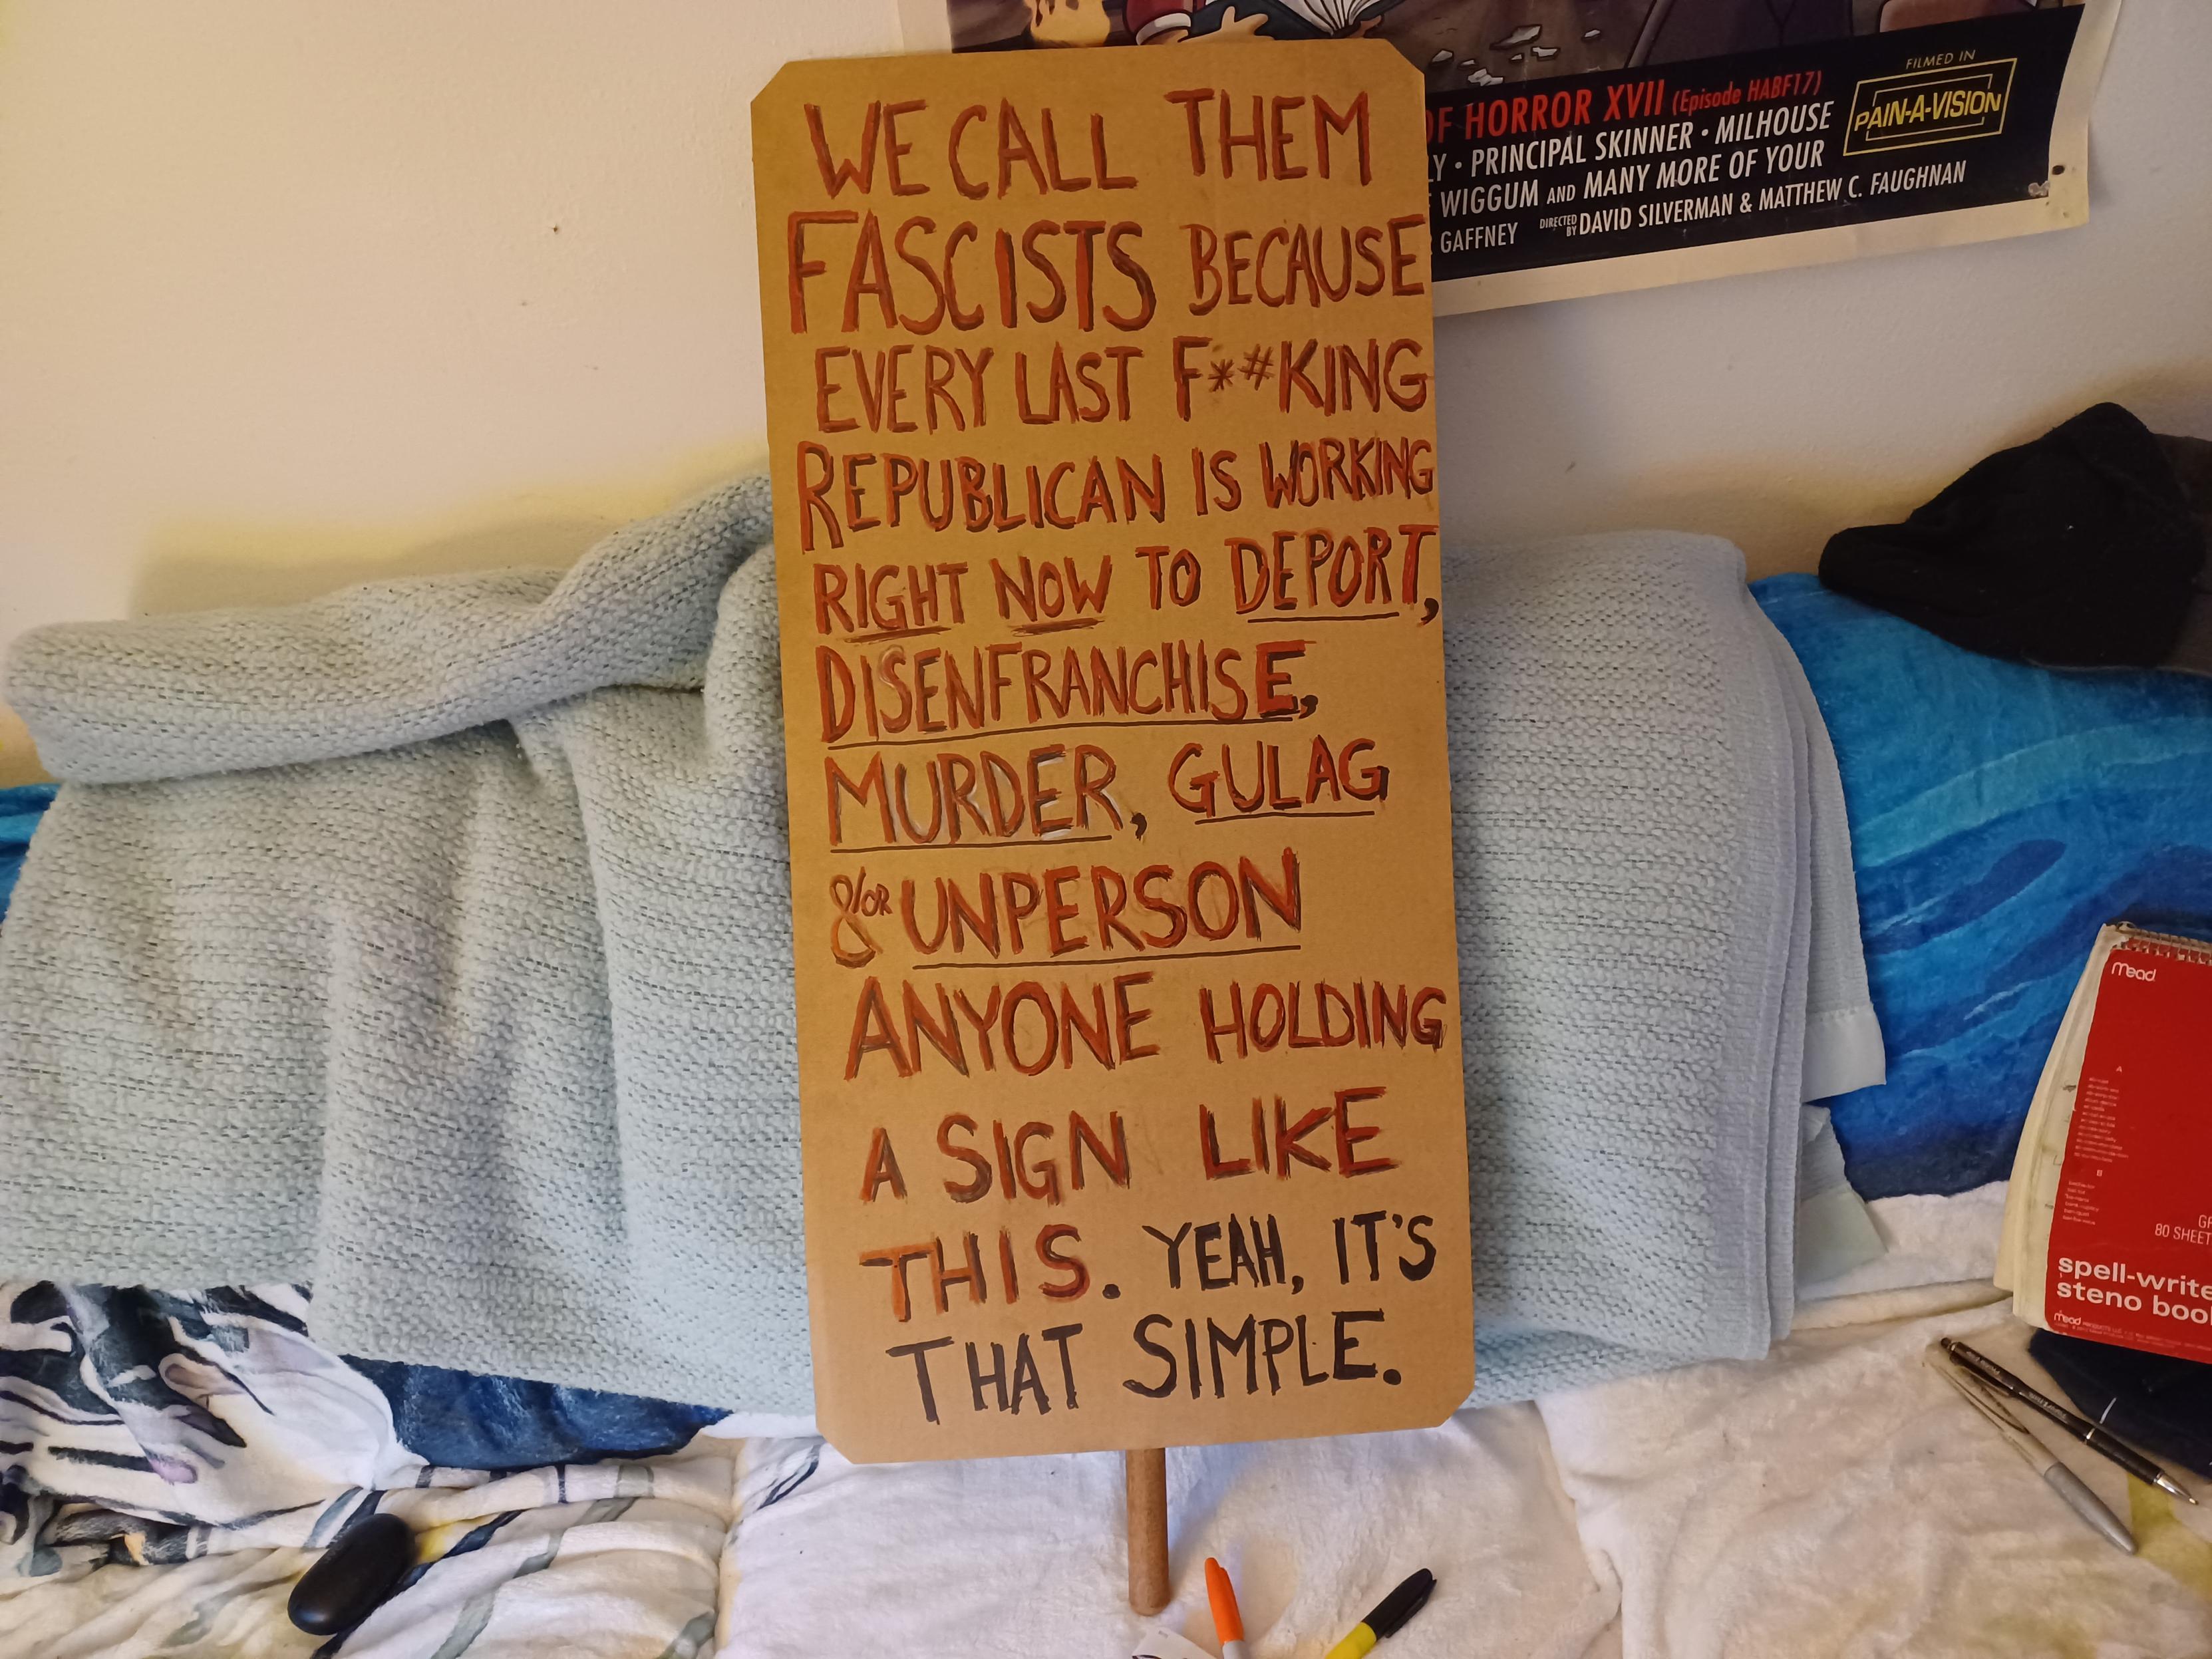 WE CALL THEM
FASCISTS BECAUSE
EVERY LAST F**#KING
REPUBLICAN IS WORKING
RIGHT NOW TO DEPORT,
DISENFRANCHISE,
MURDER, GULAG
&/OR UNPERSON
ANYONE HOLDING
A SIGN LIKE
THIS. YEAH, IT'S
THAT SIMPLE.
OF HORROR XVII (Episode HABF17)
LY • PRINCIPAL SKINNER • MILHOUSE
WIGGUM AND MANY MORE OF YOUR
GAFFNEY DIRECTED BY DAVID SILVERMAN & MATTHEW C. FAUGHNAN
FILMED IN
PAIN-A-VISION
Mead
A
B
80 SHEET
spell-write
steno boo
Mead